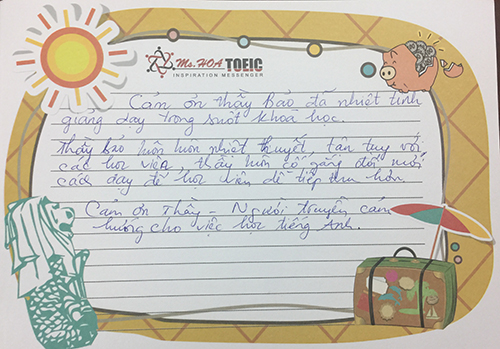 Ms. HOA TOEIC
INSPIRATION MESSENGER
Cảm ơn thầy Bảo đã nhiệt tình
giảng dạy trong suốt khoá học.
Thầy Bảo luôn luôn nhiệt huyết, tận tuỵ với
các học viên, thầy luôn cố gắng đổi mới
cách dạy để học viên dễ tiếp thu hơn
Cảm ơn Thầy - Người truyền cảm
hứng cho việc học tiếng Anh.